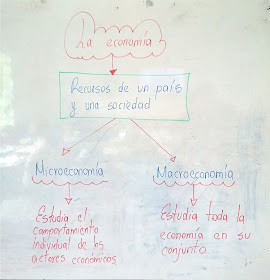 La economía
Recursos de un país
y una sociedad
Microeconomía
Macroeconomía
Estudia el
comportamiento
individual de los
actores económicos
Estudia toda la
economía en su
conjunto